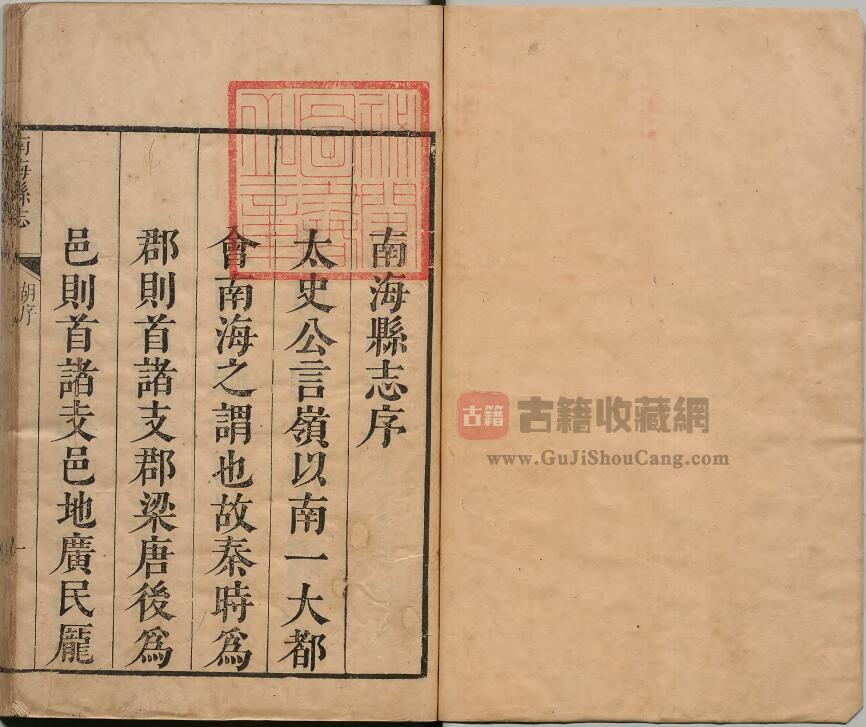 南海縣志序
太史公言嶺以南一大都
會南海之謂也故秦時爲
郡則首諸支郡梁唐後爲
邑則首諸支邑地廣民龐
南海縣志
胡序
一
古籍
古籍收藏網
www.GuJiShouCang.com